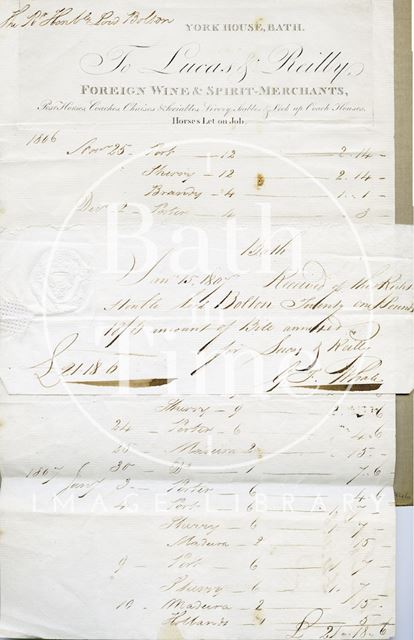 The Rt. Honble Lord Bolton
YORK HOUSE, BATH.
To Lucas & Reilly,
FOREIGN WINE & SPIRIT-MERCHANTS,
Post Horses, Coaches, Chaises & Sociables, Livery Stables & Lock up Coach Houses,
Horses Let on Job.
1806
Novr 25 - Port - 12 - 2 . 14 -
Sherry - 12 - 2 . 14 -
Brandy - 4 - 1 . 1 -
Decr 2 - Porter - 4 - 3
Bath
Jany 15. 1807 Received of the Right
Honble Lord Bolton Twenty one Pounds
18/6 amount of Bill annexed
for Lucas & Reilly
£21 18 6
Sherry - 9
24 - Porter - 6 - 4 . 6
25 - Madeira 2 - 15 -
30 - Do - 1 - 7 . 6
1807 Jany 3 - Porter - 6
4 - Port - 6 - 1 . 7 -
Sherry - 6 - 1 . 7 -
Madeira - 2 - 15 -
9 - Port - 6 - 1 . 7 -
Sherry - 6 - 1 . 7 -
10 - Madeira - 2 - 15 -
Hollands - 1 - 5
£ 21 . 18 . 6
Bath in Time
IMAGE LIBRARY